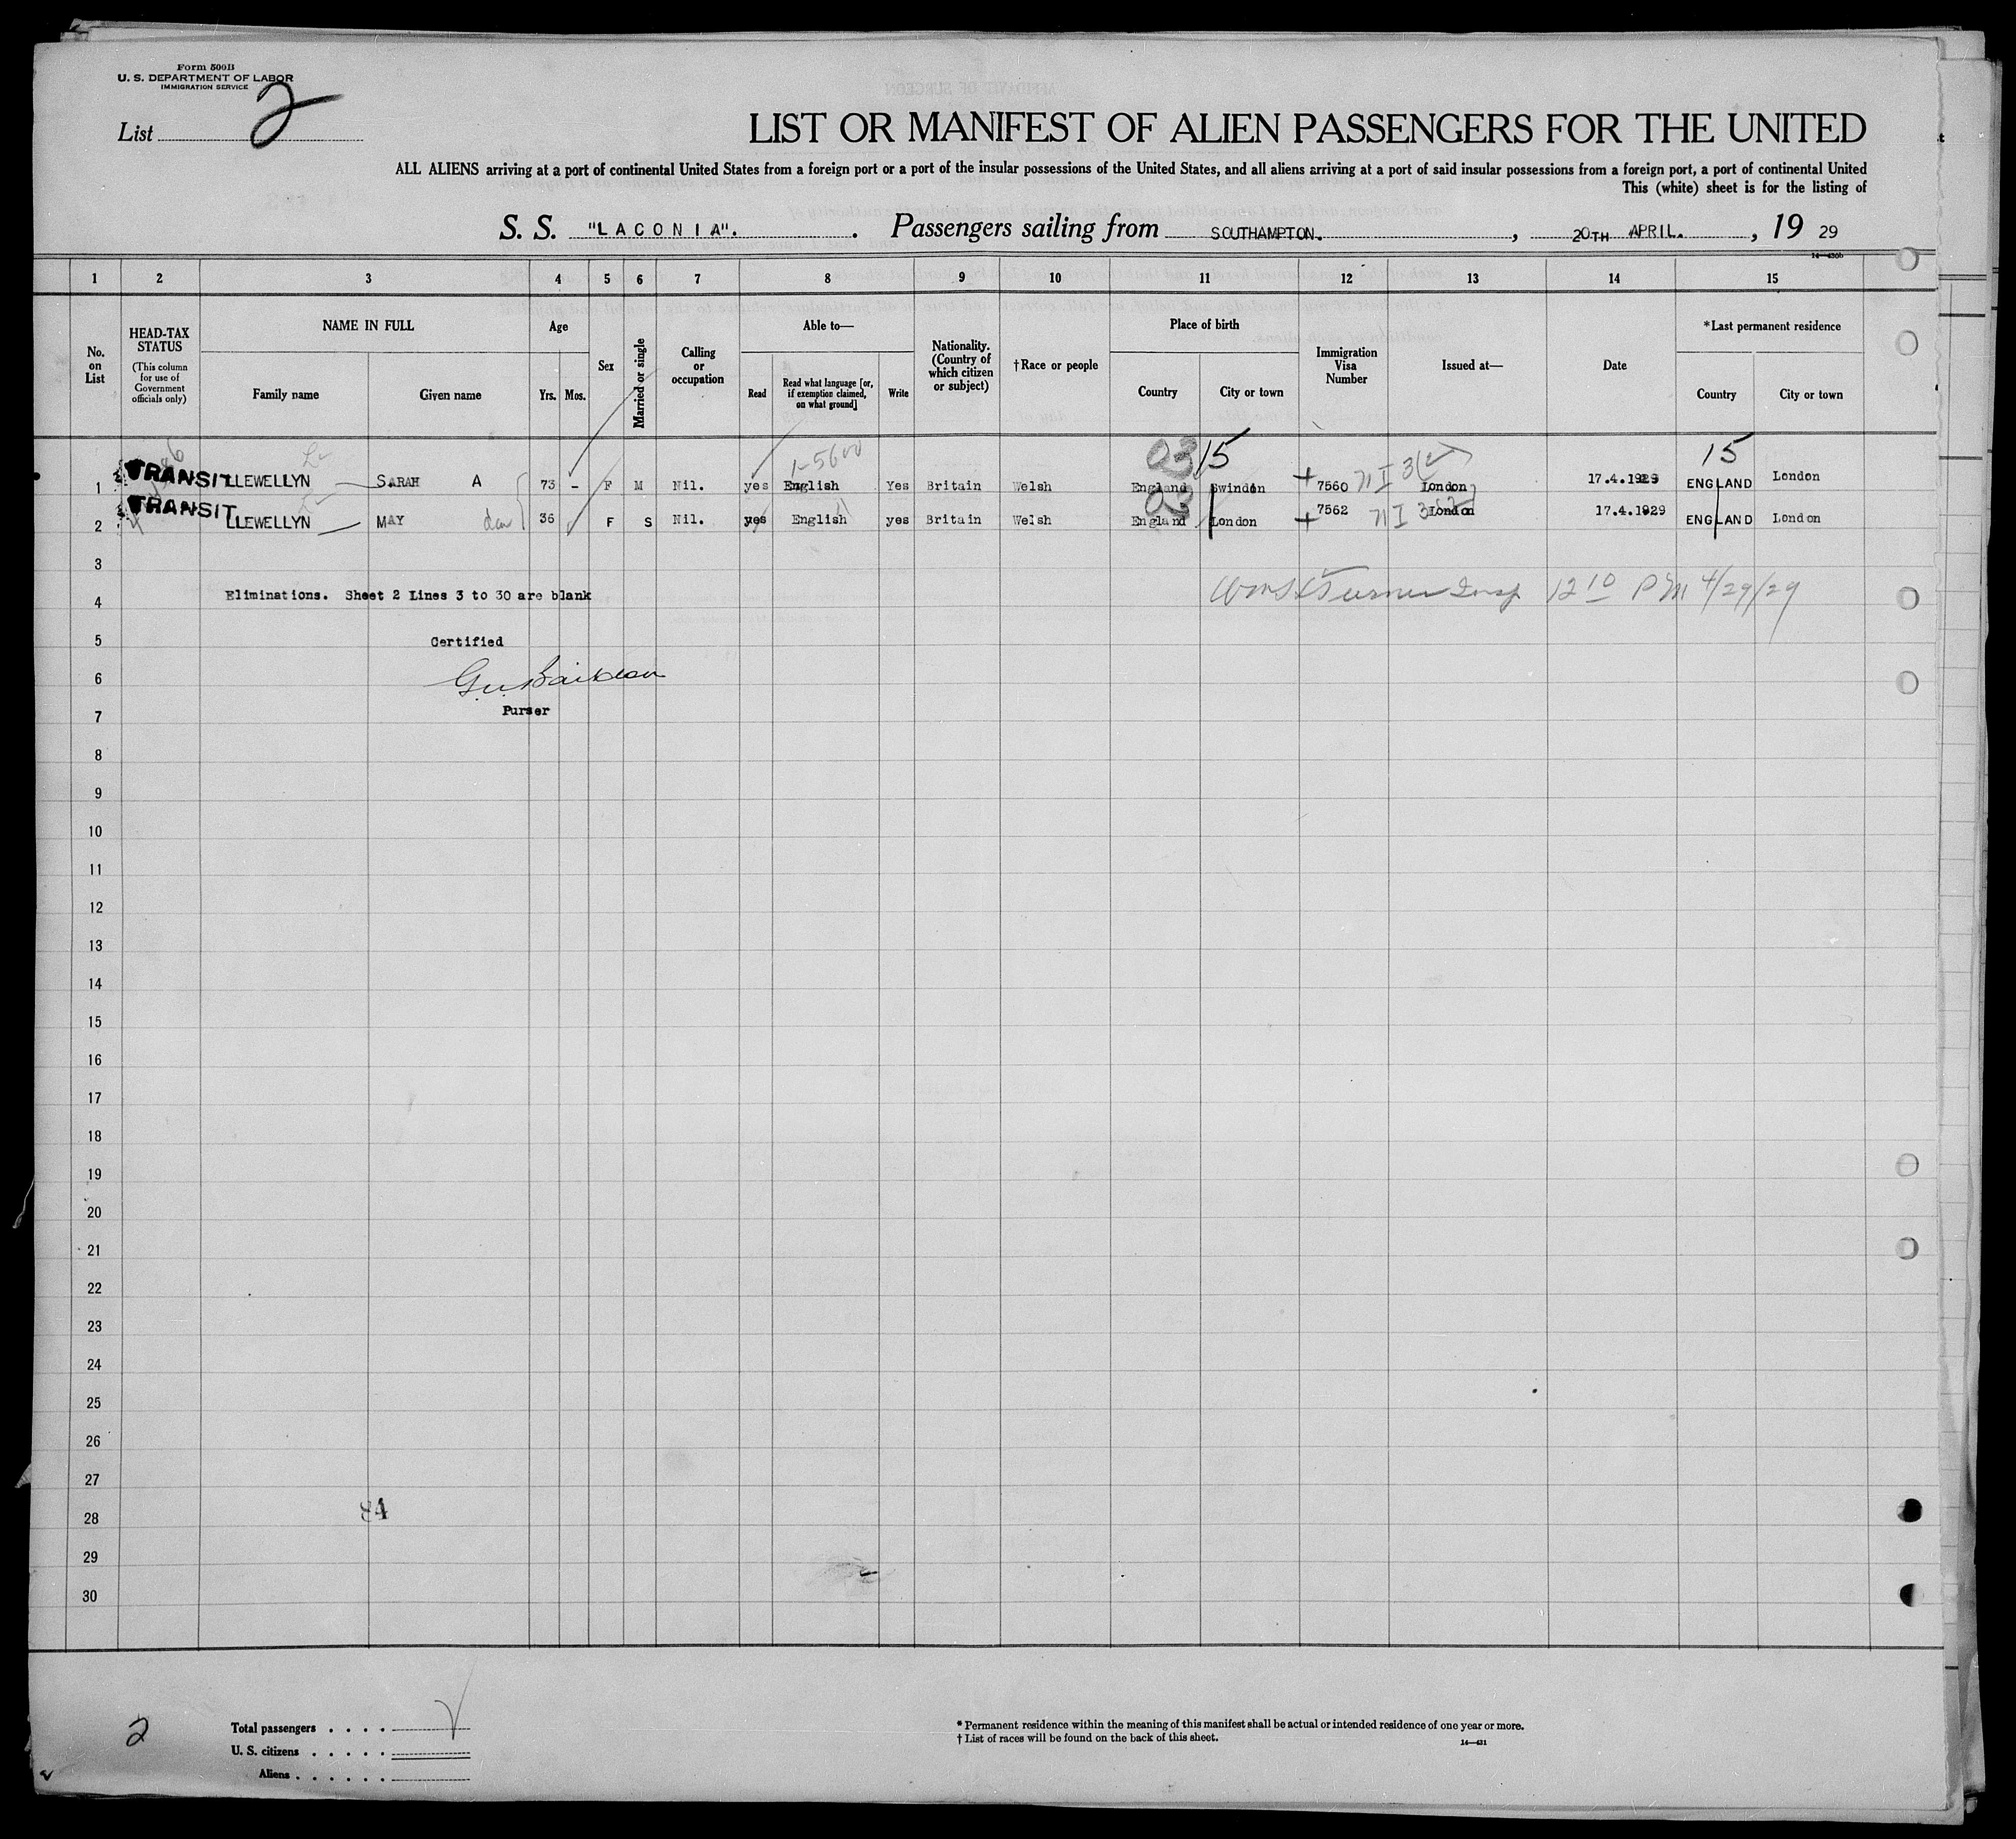 Form 500B
U. S. DEPARTMENT OF LABOR
IMMIGRATION SERVICE
List 2
LIST OR MANIFEST OF ALIEN PASSENGERS FOR THE UNITED
ALL ALIENS arriving at a port of continental United States from a foreign port or a port of the insular possessions of the United States, and all aliens arriving at a port of said insular possessions from a foreign port, a port of continental United
This (white) sheet is for the listing of
S. S. "LACONIA". Passengers sailing from SOUTHAMPTON. , 20TH APRIL. , 19 29
1 2 3 4 5 6 7 8 9 10 11 12 13 14 15
No. on List
HEAD-TAX STATUS
(This column for use of Government officials only)
NAME IN FULL
Family name
Given name
Age
Yrs.
Mos.
Sex
Married or single
Calling or occupation
Able to—
Read
Read what language [or, if exemption claimed, on what ground]
Write
Nationality. (Country of which citizen or subject)
†Race or people
Place of birth
Country
City or town
Immigration Visa Number
Issued at—
Date
*Last permanent residence
Country
City or town
03 15 15
1-5600
1 TRANSIT LLEWELLYN SARAH A 73 - F M Nil. yes English Yes Britain Welsh England Swindon 7560 London 17.4.1929 ENGLAND London
2 TRANSIT LLEWELLYN MAY 36 F S Nil. yes English yes Britain Welsh England London 7562 London 17.4.1929 ENGLAND London
03
3
Eliminations. Sheet 2 Lines 3 to 30 are blank
Turner Insp 12 10 PM 4/29/29
4
Certified
5
6
Purser
7
8
9
10
11
12
13
14
15
16
17
18
19
20
21
22
23
24
25
26
27
84
28
29
30
2
Total passengers . . . .
U. S. citizens . . . . .
Aliens . . . . . .
* Permanent residence within the meaning of this manifest shall be actual or intended residence of one year or more.
† List of races will be found on the back of this sheet.
14—431